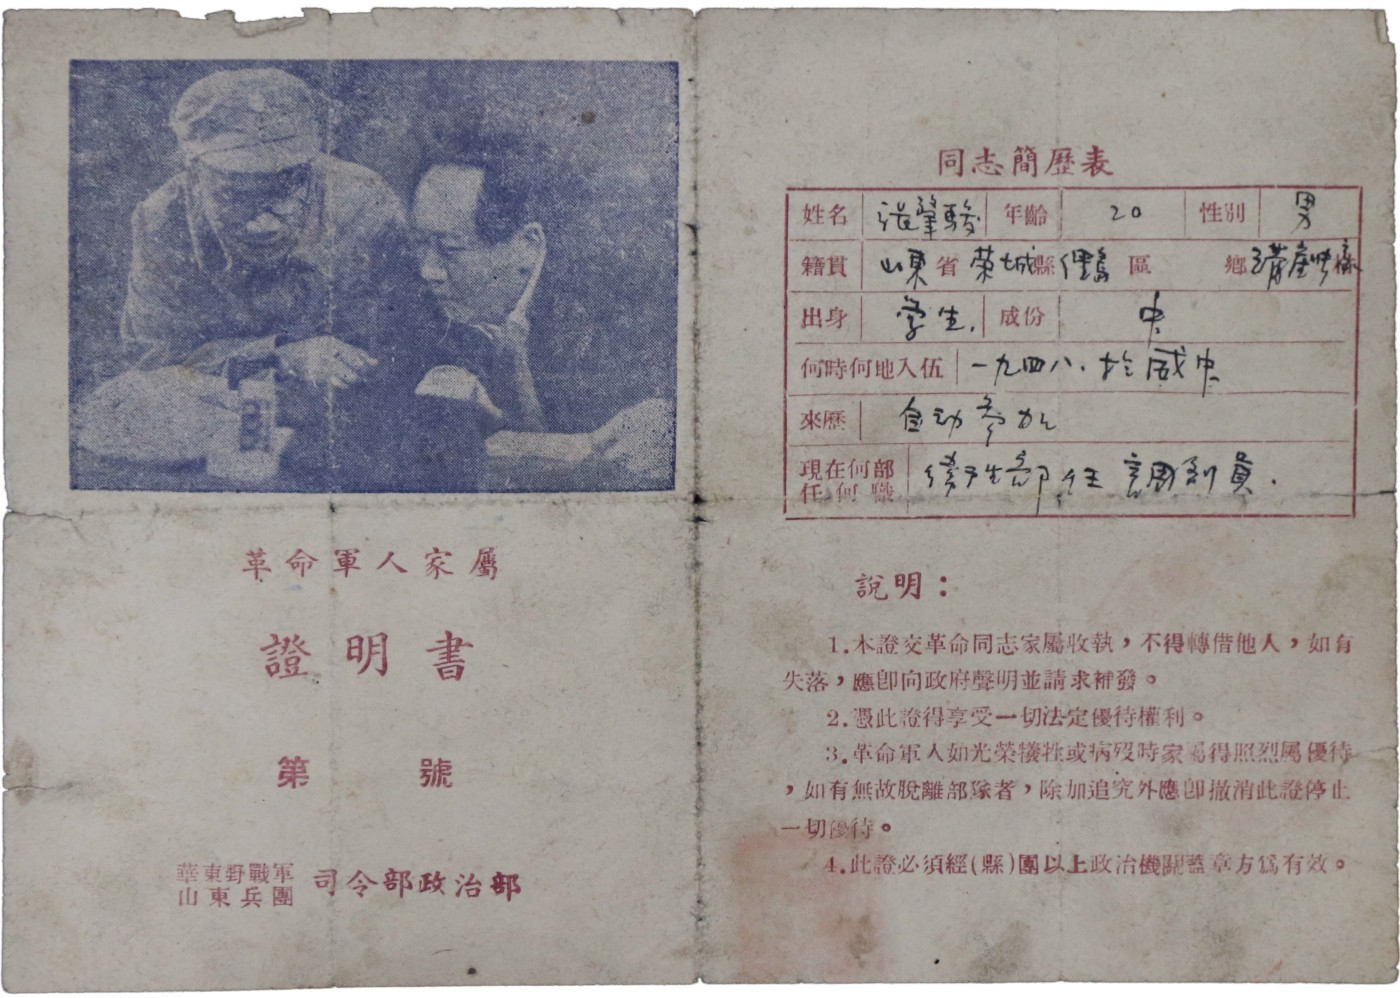 革命軍人家屬
證明書
第 號
華東野戰軍
山東兵團 司令部政治部
同志簡歷表
姓名 肇駿 年齡 20 性別 男
籍貫 山東 省 榮城 縣 區 鄉
出身 学生. 成份 中
何時何地入伍 一九四八. 於威中
來歷 自动参加
現在何部
任何職 衛生部任調剂員.
說明：
1.本證交革命同志家屬收執，不得轉借他人，如有
失落，應卽向政府聲明並請求補發。
2.憑此證得享受一切法定優待權利。
3.革命軍人如光榮犧牲或病歿時家屬得照烈屬優待
，如有無故脫離部隊者，除加追究外應卽撤消此證停止
一切優待。
4.此證必須經(縣)團以上政治機關蓋章方爲有效。